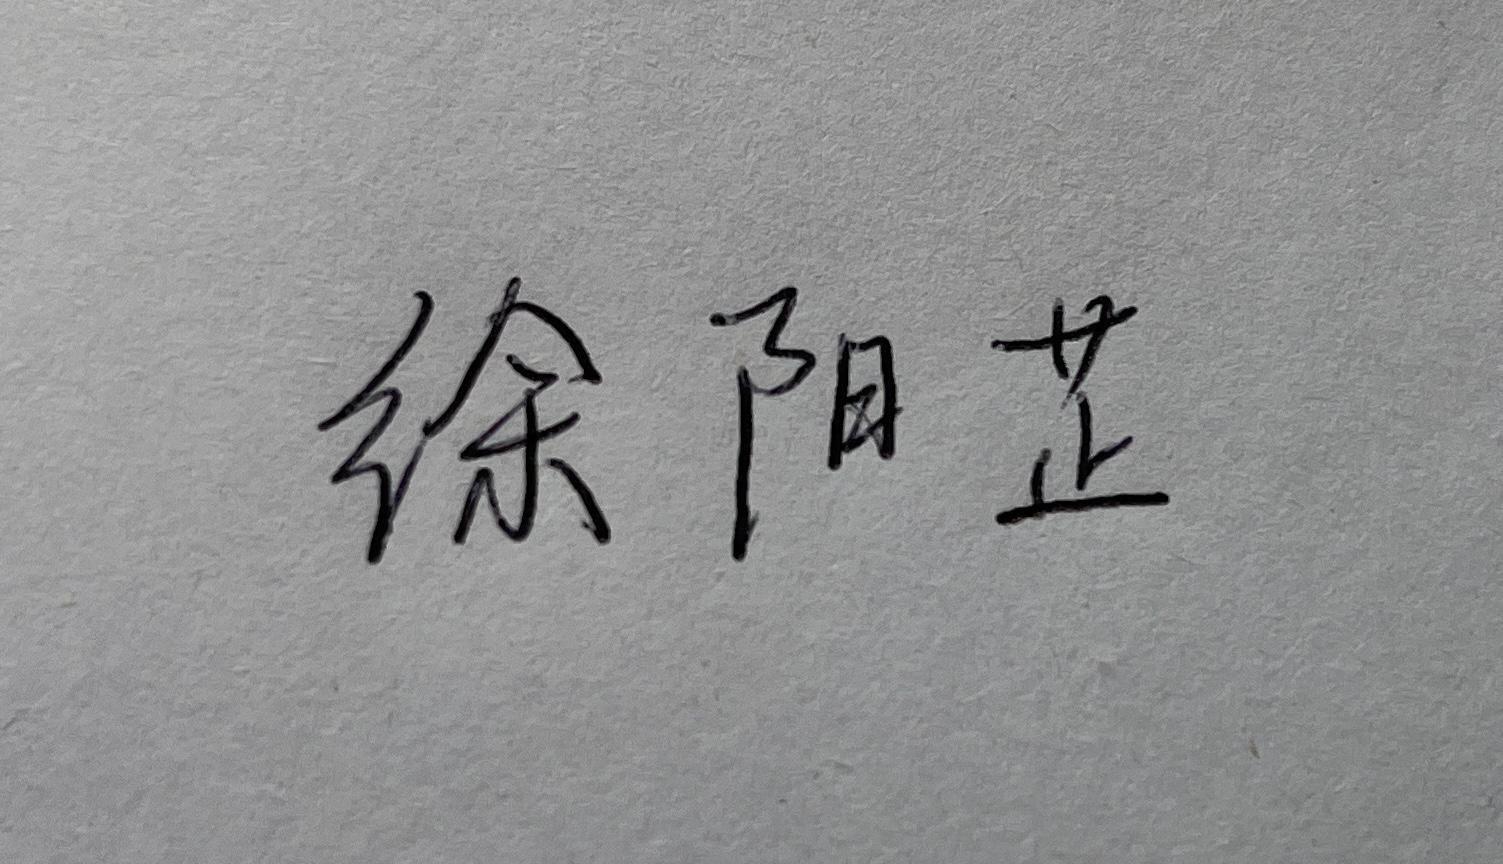 徐阳芷